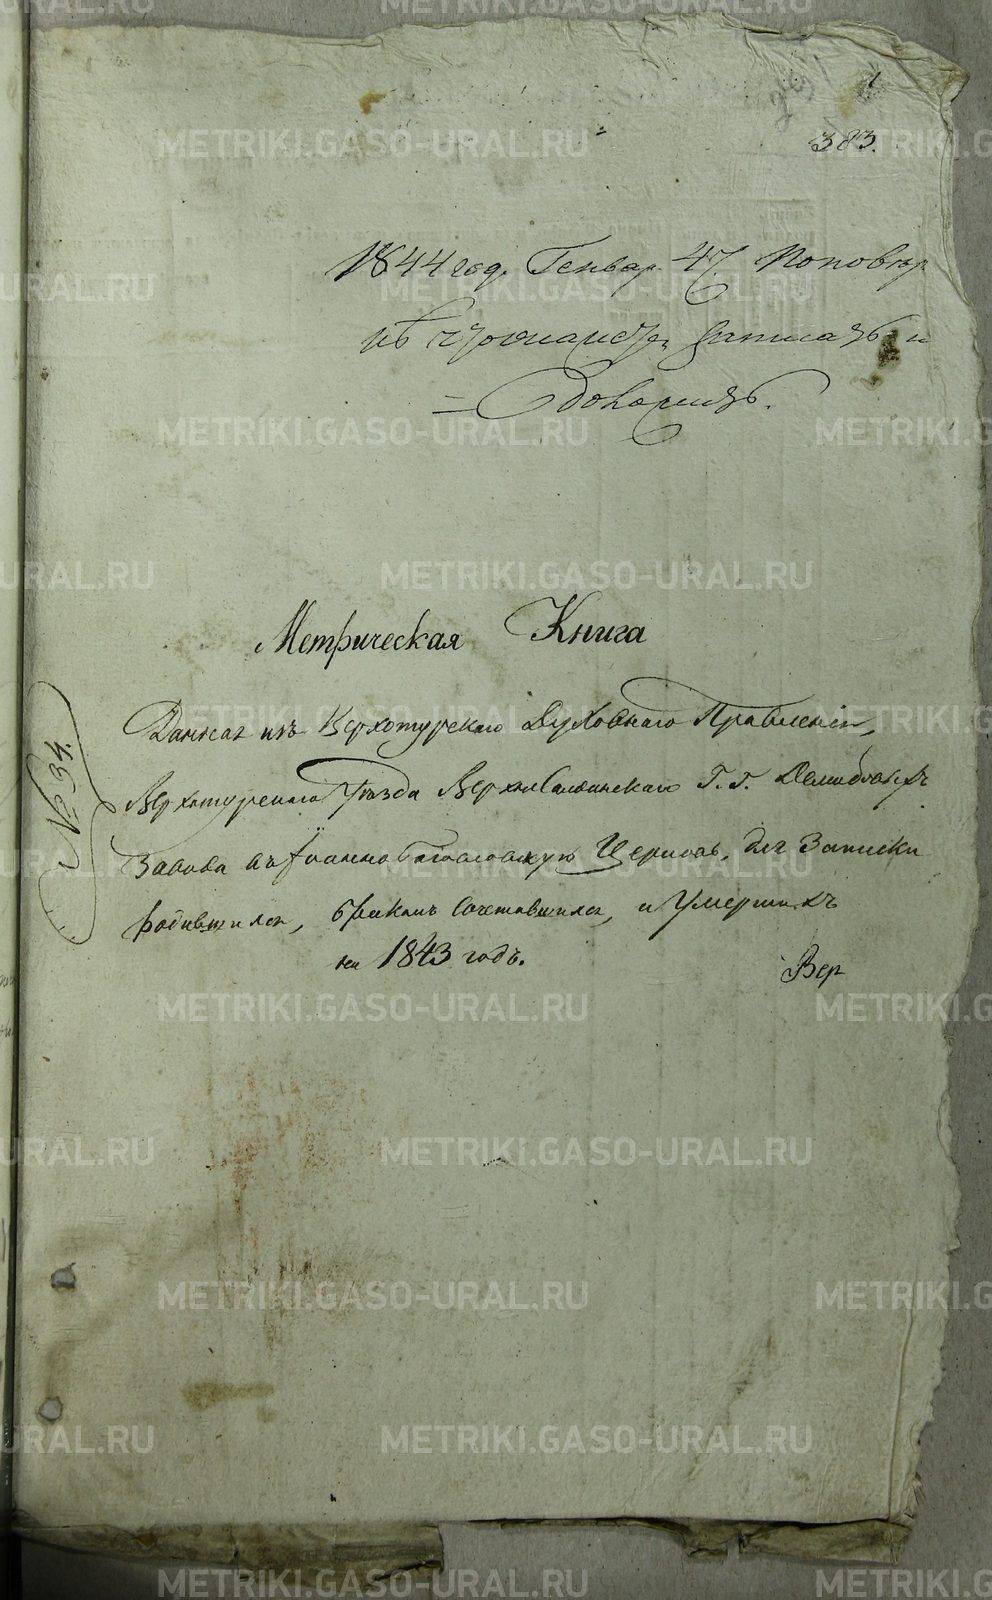 383.
1844 год. Генвар. 47. Поповъ
записать и
доложить.
Метрическая Книга
№ 34.
Данная изъ Верхотурскаго Духовнаго Правленія,
Верхотурскаго Уѣзда Верхнесалдинскаго Г. Г. Демидовыхъ
Завода въ Іоанно Богословскую Церковь, для Записки
родившихся, бракомъ сочетавшихся, и Умершихъ
на 1843 годъ.
Вер
METRIKI.GASO-URAL.RU